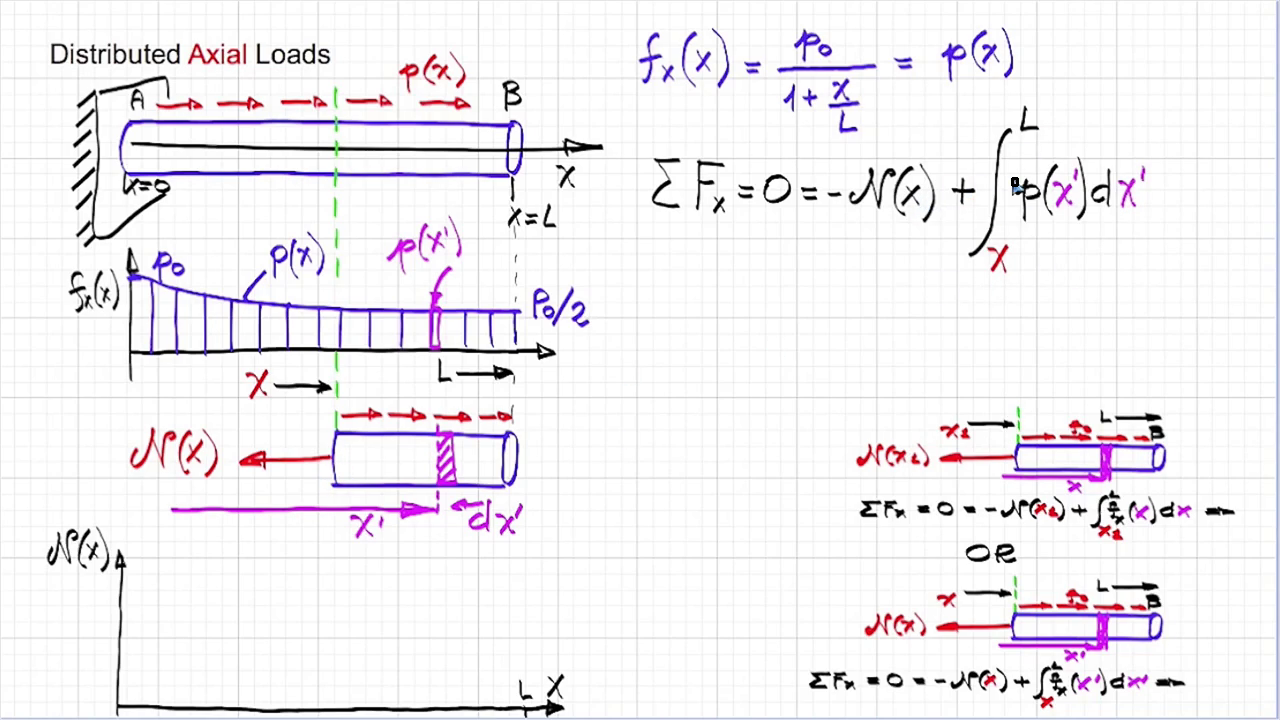 Distributed Axial Loads
p(x)
A
B
x=0
x
x=L
fx(x)
p0
p(x)
p(x')
P0/2
x
L
N(x)
x'
dx'
N(x)
L x
fx(x) = p0 / (1 + x/L) = p(x)
ΣFx = 0 = -N(x) + ∫ₓᴸ p(x')dx'
x1
L
B
N(x1)
x
ΣFx = 0 = -N(x1) + ∫ (x)dx ⇒
OR
x
L
B
N(x)
x'
ΣFx = 0 = -N(x) + ∫ (x')dx' ⇒